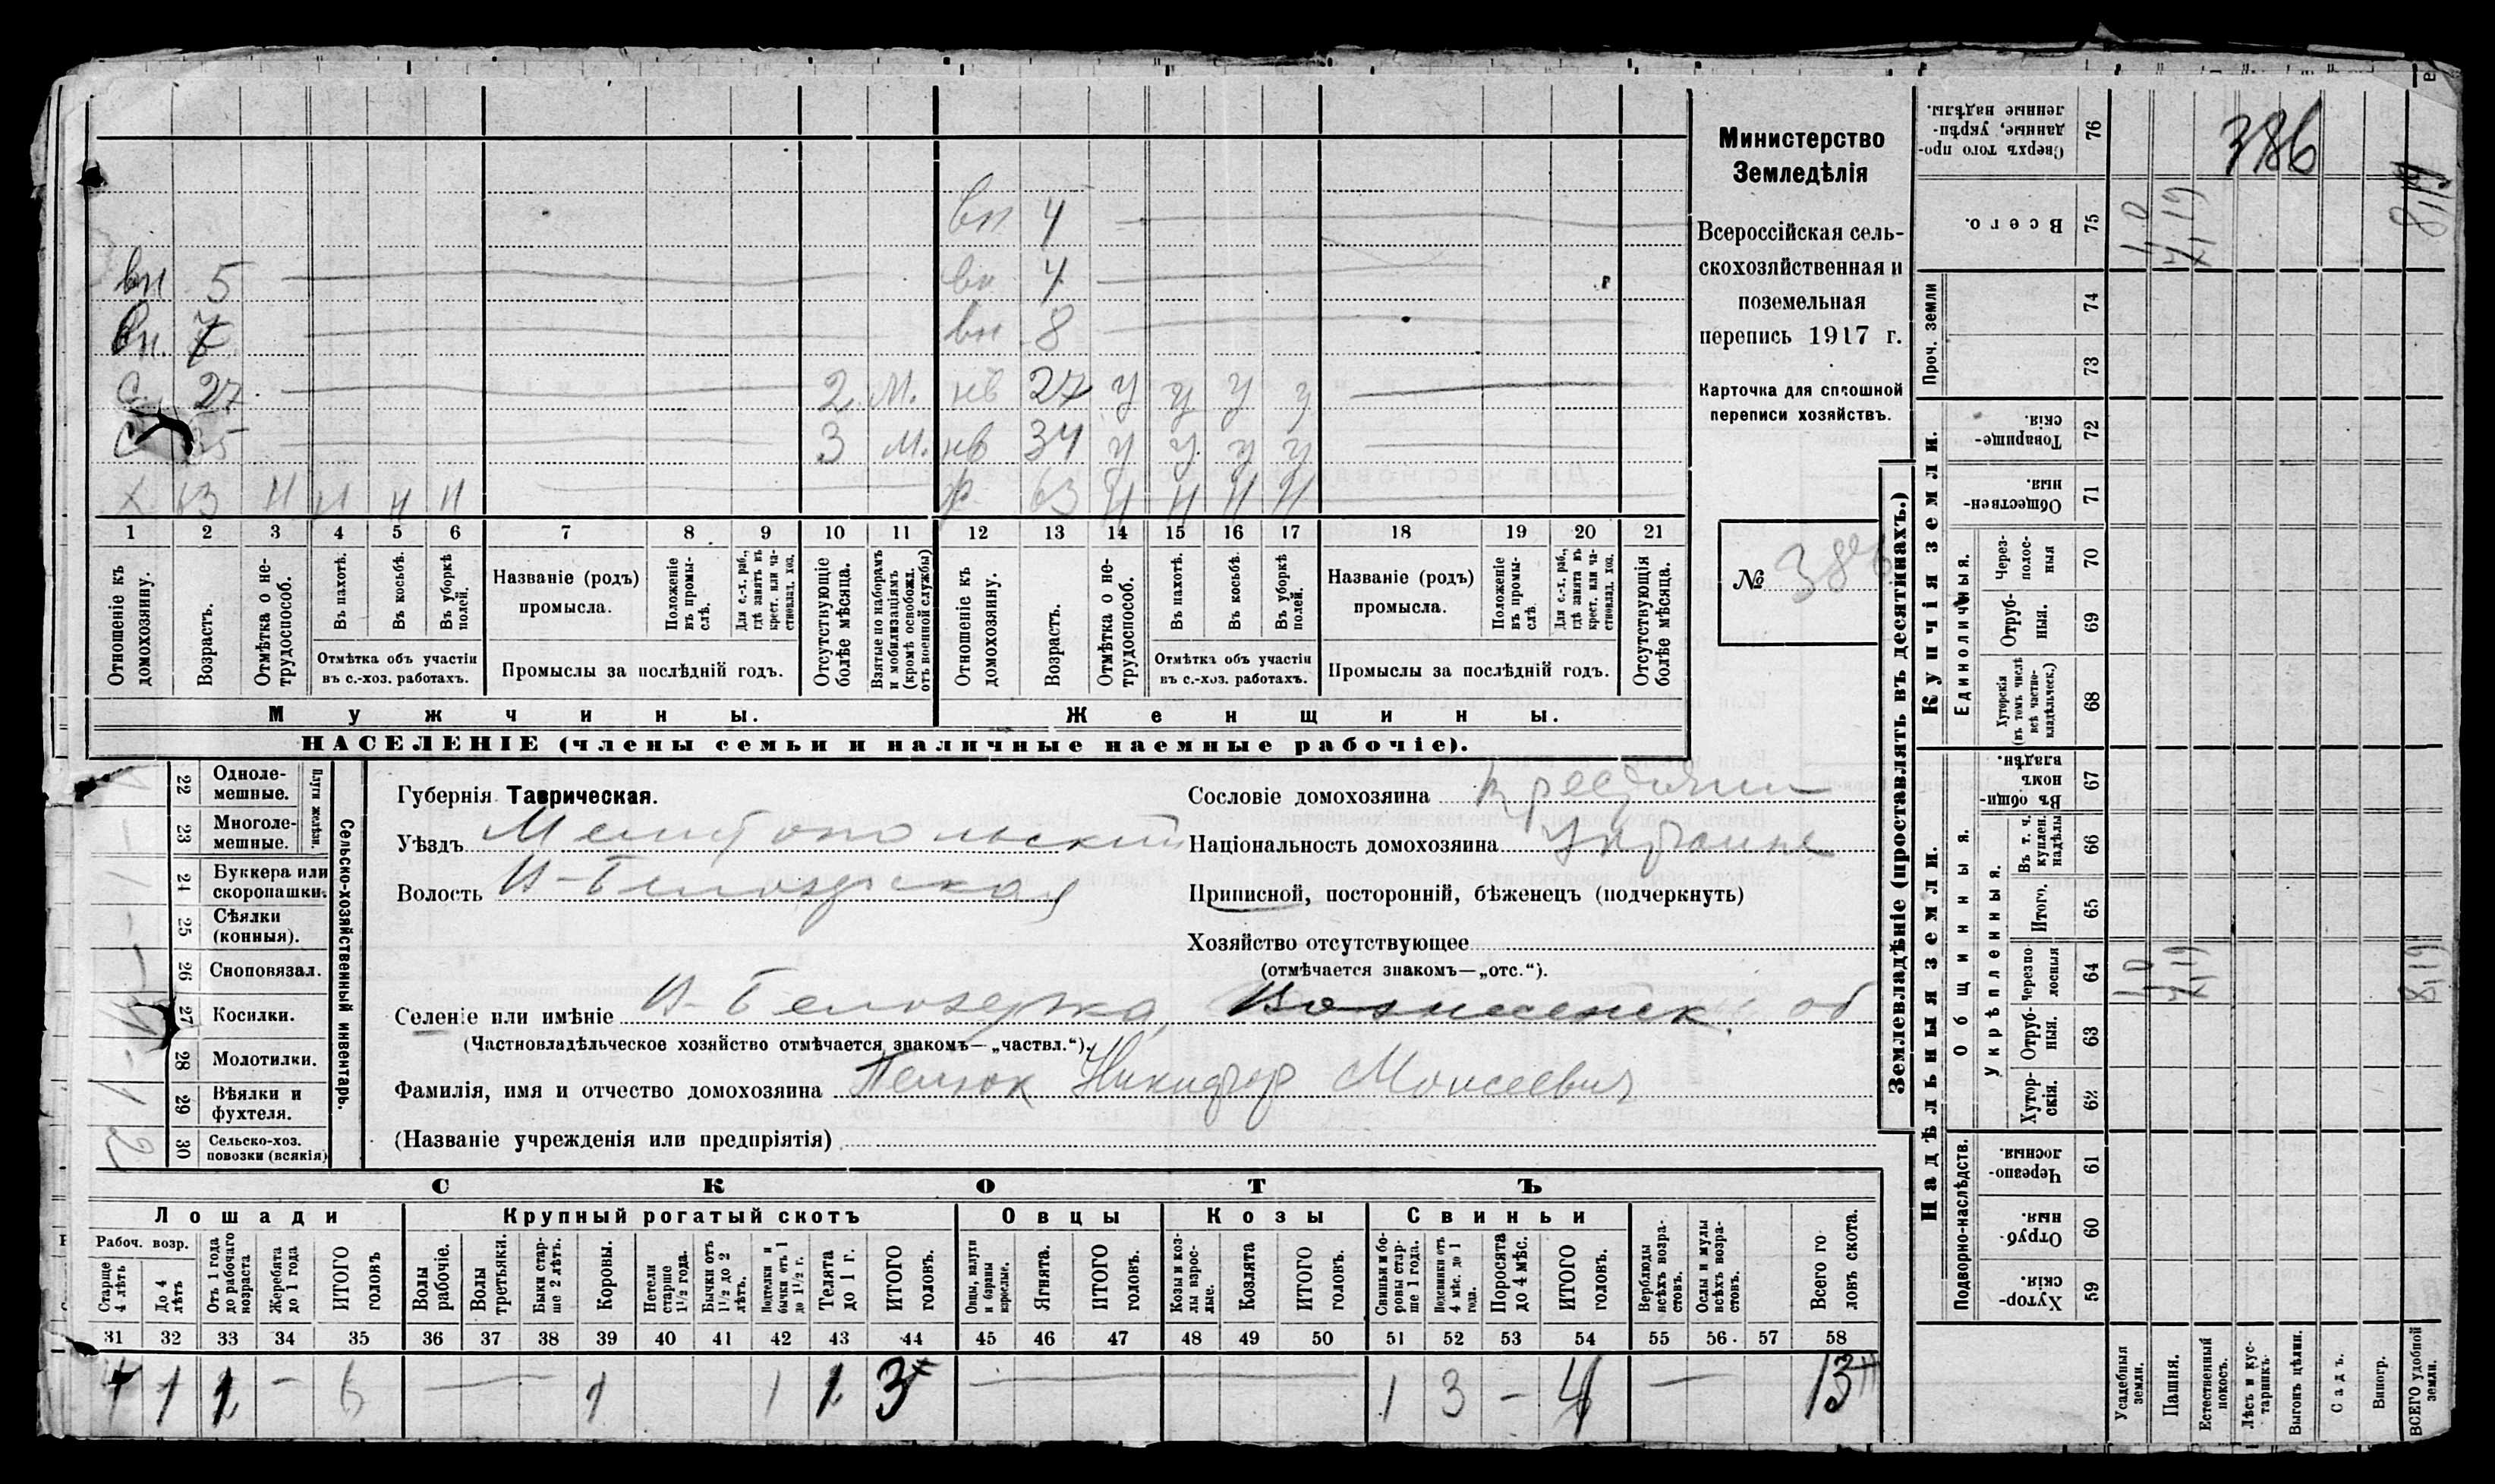 вн 4
вн 5 вн 4
вн. 7 вн 8
с. 27 2 М. нв 27 у у у у
с 35 3 М. нв 34 у у у у
х 63 н н н н ж 63 н н н н
1 2 3 4 5 6 7 8 9 10 11 12 13 14 15 16 17 18 19 20 21
Отношеніе къ домохозяину.
Возрастъ.
Отмѣтка о не-трудоспособ.
Въ пахотѣ.
Въ косьбѣ.
Въ уборкѣ полей.
Отмѣтка объ участіи въ с.-хоз. работахъ.
Названіе (родъ) промысла.
Положеніе въ промы-слѣ.
Для с.-х. раб., гдѣ занятъ въ крест. или ча-стновлад. хоз.
Промыслы за послѣдній годъ.
Отсутствующіе болѣе мѣсяца.
Взятые по наборамъ и мобилизаціямъ (кромѣ освобожд. отъ военной службы)
Отношеніе къ домохозяину.
Возрастъ.
Отмѣтка о не-трудоспособ.
Въ пахотѣ.
Въ косьбѣ.
Въ уборкѣ полей.
Отмѣтка объ участіи въ с.-хоз. работахъ.
Названіе (родъ) промысла.
Положеніе въ промы-слѣ.
Для с.-х. раб., гдѣ занята въ крест. или ча-стновлад. хоз.
Промыслы за послѣдній годъ.
Отсутствующія болѣе мѣсяца.
Мужчины. Женщины.
НАСЕЛЕНІЕ (члены семьи и наличные наемные рабочіе).
Министерство
Земледѣлія
Всероссійская сель-
скохозяйственная и
поземельная
перепись 1917 г.
Карточка для сплошной
переписи хозяйствъ.
№ 386
22 Одноле-мешные.
23 Многоле-мешные.
Плуги желѣзн.
24 Буккера или скоропашки.
25 Сѣялки (конныя).
26 Сноповязал.
27 Косилки.
28 Молотилки.
29 Вѣялки и фухтеля. 1
30 Сельско-хоз. повозки (всякія) 2
Сельско-хозяйственный инвентарь.
Губернія Таврическая.
Уѣздъ Мелитопольскій
Волость В-Белозерская
Сословіе домохозяина крестьянин
Національность домохозяина Украине
Приписной, посторонній, бѣженецъ (подчеркнуть)
Хозяйство отсутствующее
(отмѣчается знакомъ—„отс.“).
Селеніе или имѣніе В-Белозерка, Вознесенск. об
(Частновладѣльческое хозяйство отмѣчается знакомъ—„частвл.“).
Фамилія, имя и отчество домохозяина Пелюк Никифор Моисеевич
(Названіе учрежденія или предпріятія)
СКОТЪ
Лошади Крупный рогатый скотъ Овцы Козы Свиньи
Рабоч. возр.
Старше 4 лѣтъ
До 4 лѣтъ
Отъ 1 года до рабочаго возраста
Жеребята до 1 года
ИТОГО головъ
Волы рабочіе.
Волы третьяки.
Быки стар-ше 2 лѣтъ.
Коровы.
Нетели старше 1½ года.
Бычки отъ 1½ до 2 лѣтъ.
Подтелки и бычки отъ 1 до 1½ г.
Телята до 1 г.
ИТОГО головъ.
Овцы, валухи и бараны взрослые.
Ягнята.
ИТОГО головъ.
Козы и коз-лы взрос-лые.
Козлята
ИТОГО головъ.
Свиньи и бо-ровы стар-ше 1 года.
Подсвинки отъ 4 мѣс. до 1 года.
Поросята до 4 мѣс.
ИТОГО головъ.
Верблюды всѣхъ возра-стовъ.
Ослы и мулы всѣхъ возра-стовъ.
Всего го-ловъ скота.
31 32 33 34 35 36 37 38 39 40 41 42 43 44 45 46 47 48 49 50 51 52 53 54 55 56. 57 58
4 1 1 - 6 — 1 1 1 3 — 1 3 - 4 — 13
Землевладѣніе (проставлять въ десятинахъ.)
Надѣльныя земли. Купчія земли. Проч. земли
Подворно-наслѣдств.
Общинныя.
Укрѣпленныя.
Единоличныя.
59 Хутор-скія.
60 Отруб-ныя.
61 Черезпо-лосныя.
62 Хутор-скія.
63 Отруб-ныя.
64 Черезпо-лосныя
65 Итого.
66 Въ т. ч. куплен. надѣлы
67 Въ общин-номъ владѣн.
68 Хуторскія (въ томъ числѣ всѣ частно-владѣльческ.)
69 Отруб-ныя.
70 Через-полос-ныя
71 Обществен-ныя.
72 Товарище-скія.
73
74
75 Всего.
76 Сверхъ того про-данные, укрѣп-ленные надѣлы.
386
Усадебныя земли.
Пашня.
Естественный покосъ.
Лѣсъ и кус-тарникъ.
Выгонъ цѣлин.
Садъ.
Виногр.
ВСЕГО удобной земли.
1,0 7,19 8,19
1,0 7,19 8,19